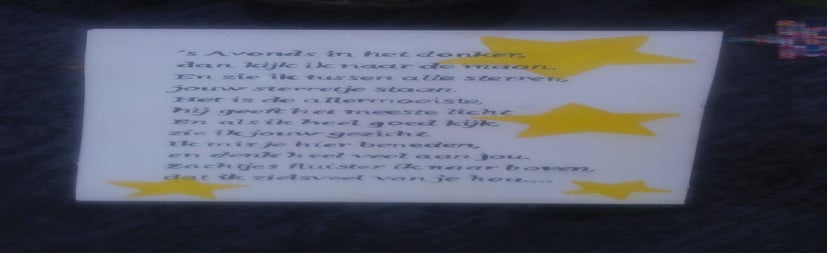 's Avonds in het donker,
dan kijk ik naar de maan.
En zie ik tussen alle sterren,
jouw sterretje staan.
Het is de allermooiste,
hij geeft het meeste licht
En als ik heel goed kijk,
zie ik jouw gezicht.
Ik mis je hier beneden,
en denk heel veel aan jou.
Zachtjes fluister ik naar boven,
dat ik zielsveel van je hou....